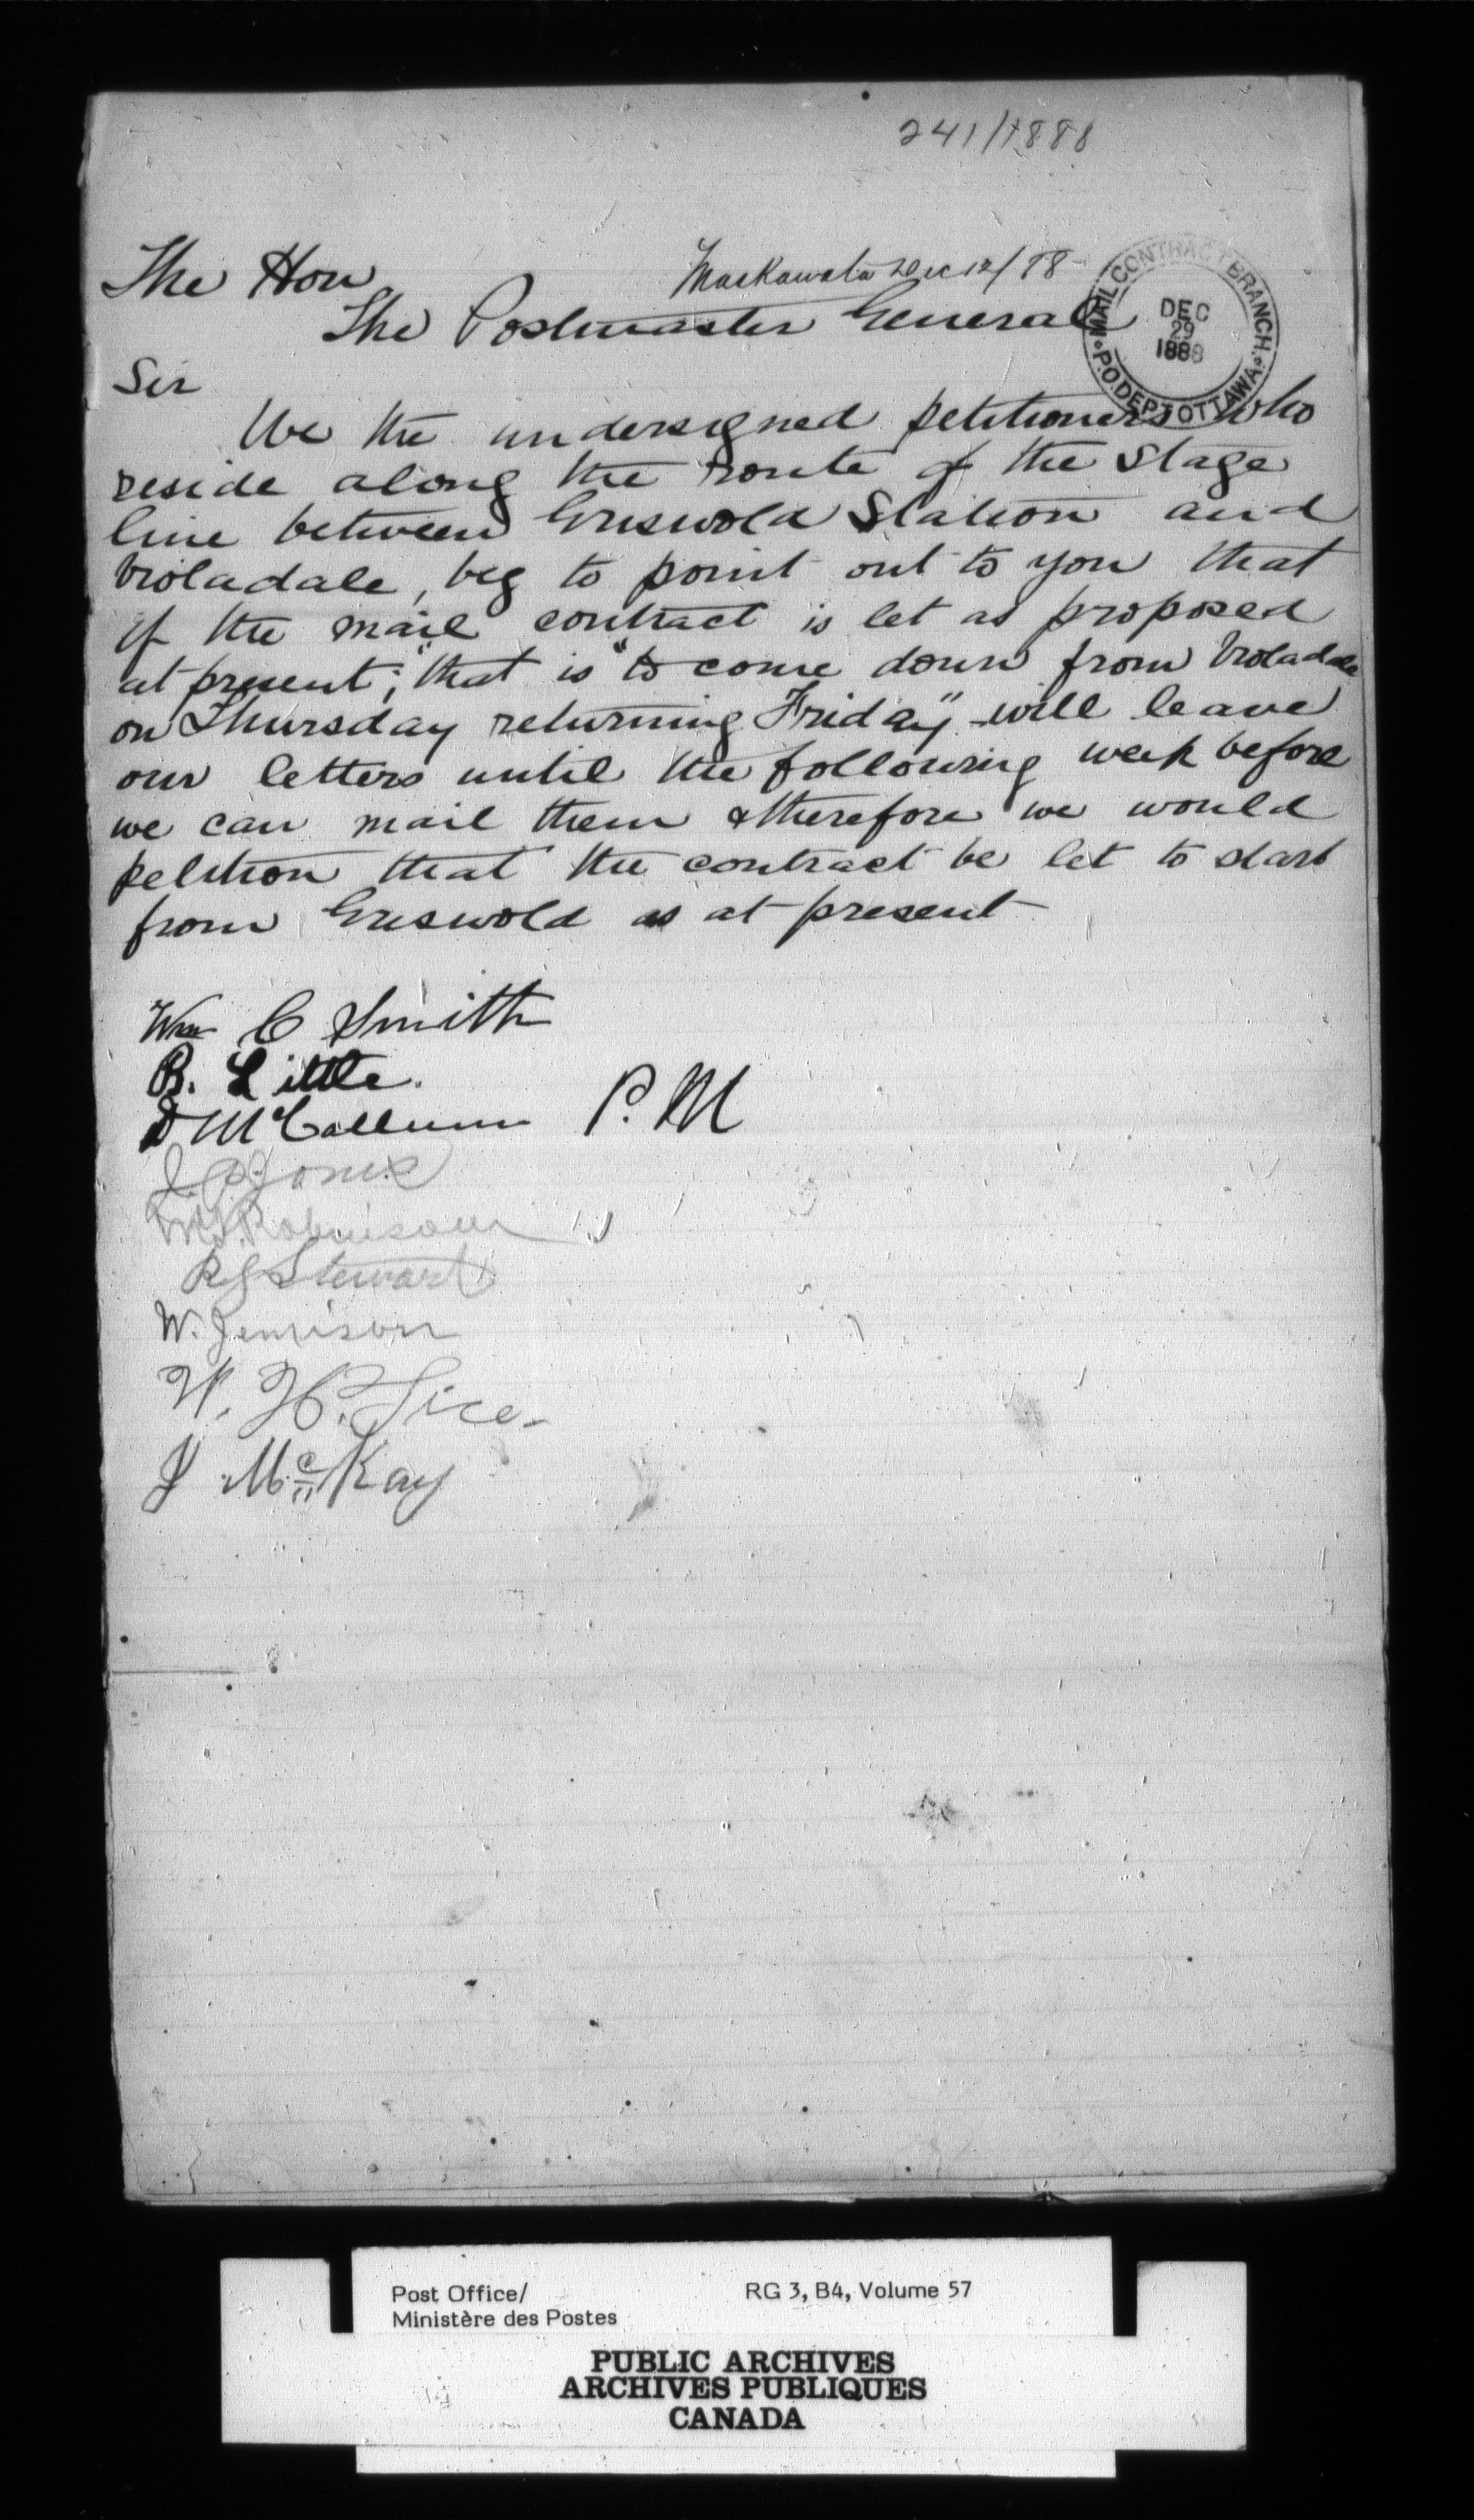 241/1888
Maskawata Dec 12/88
The Hon
The Postmaster General
MAIL CONTRACT BRANCH
DEC
29
1888
P.O. DEPT OTTAWA
Sir
We the undersigned petitioners who
reside along the route of the Stage
line between Griswold Station and
Violadale, beg to point out to you that
if the mail contract is let as proposed
at present; "that is" to come down from Violadale
on Thursday returning Friday" will leave
our letters until the following week before
we can mail them & therefore we would
petition that the contract be let to start
from Griswold as at present
Wm C Smith
B. Little.
D McCallum P.M
J.P. Jones
Robinson
R J Stewart
W. Jemison
W. H. Tice
J McKay
Post Office/ RG 3, B4, Volume 57
Ministère des Postes
PUBLIC ARCHIVES
ARCHIVES PUBLIQUES
CANADA